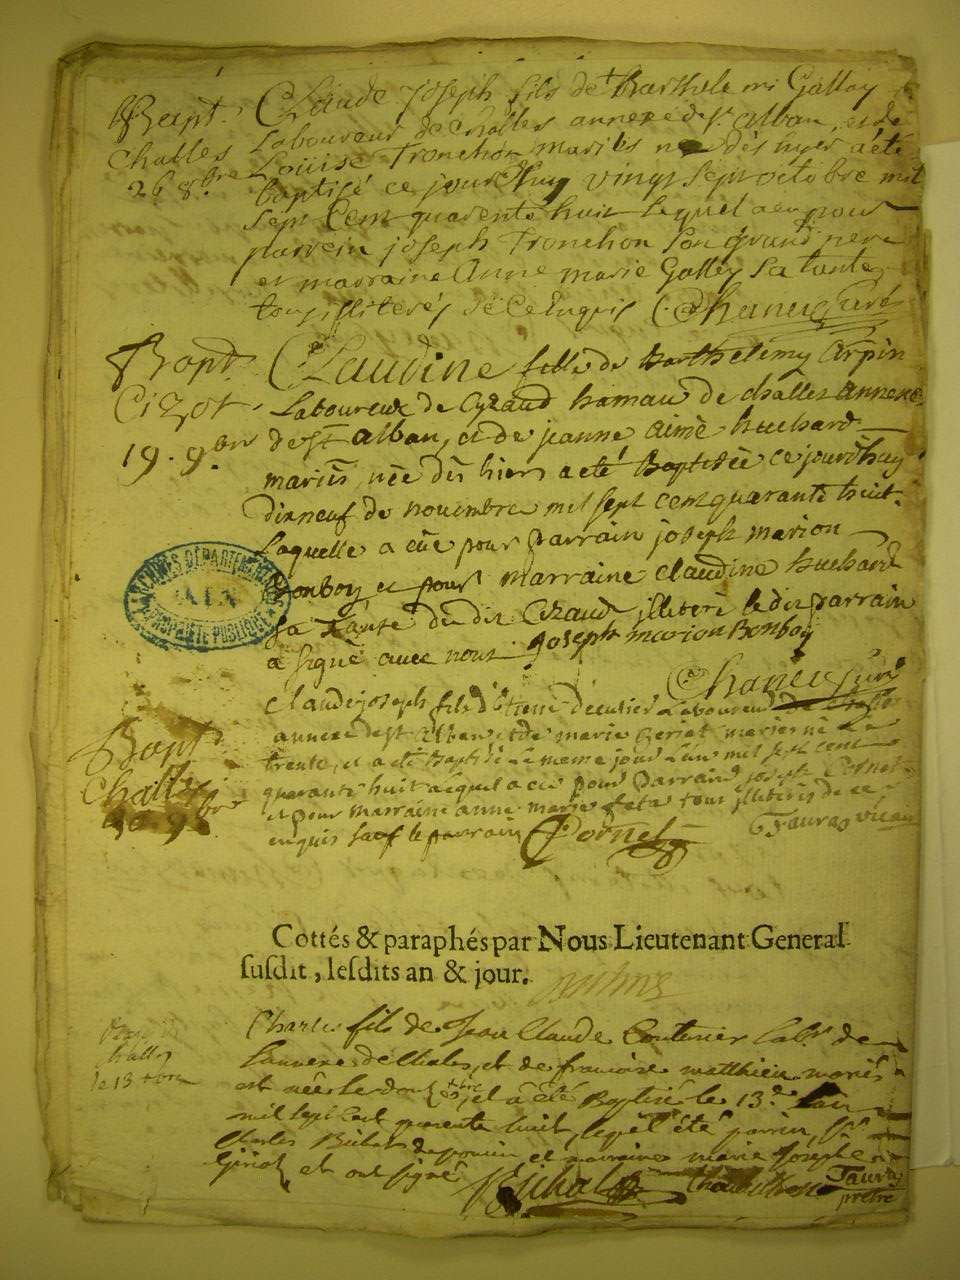 Bapt. Claude joseph fils de Barthelemi Galley
Challes Laboureur de Challes annexe de st alban, et de
26 8.bre Louise Tronchon mariés né dès hyer a été
baptisé ce jourd'huy vingt sept octobre mil
sept Cent quarente huit lequel a eu pour
parrein joseph Tronchon son grand pere
et marraine Anne marie Galley sa tante
tous illiterés de ce enquis Chaneu Curé
Bapt. Claudine fille de Barthelemy Arpin
Cizot Laboureur de Cyzaud hameau de challes annexe
19. 9.bre de st alban, et de jeanne aimé huchard
mariés, née dès hiers a eté Baptisée ce jourdhuy
dixneuf de novembre mil sept cent quarante huit.
Laquelle a eüe pour Parrain joseph marion
Bonboy et pour marraine claudine huchard
sa Tante du dit Cizaud illiteré le dit parrain
a signé avec nous joseph marion Bonboy
Chaneu Curé
ARCHIVES DÉPARTEMENTALES
AIN
PROPRIÉTÉ PUBLIQUE
Bapt. Claude joseph fils d'Etiene Laboureur de Challes
annexe de st alban et de marie mariés né Le
trente, et a eté Baptisé Le meme jour L'an mil sept cent
Challes quarante huit auquel a eté pour Parrain joseph Cornet
30. 9.bre et pour marraine anne marie tous illiterés de ce
enquis sauf le parrain Cornet Tauras vicaire
Cottés & paraphés par Nous Lieutenant General
susdit, lesdits an & jour.
Charles fils de Jean Claude Couturier Lab.r de
challes L'annexe de Chales, et de francoise matthieu mariés
le 13 est née Le douz xbre, et a été Baptisé le 13.e L'an
mil sept Cent quarente huit, le parrin, Sr
Charles Bichat et marraine marie Josephe
Giriod, et ont signé Bichat Tauras
prêtre